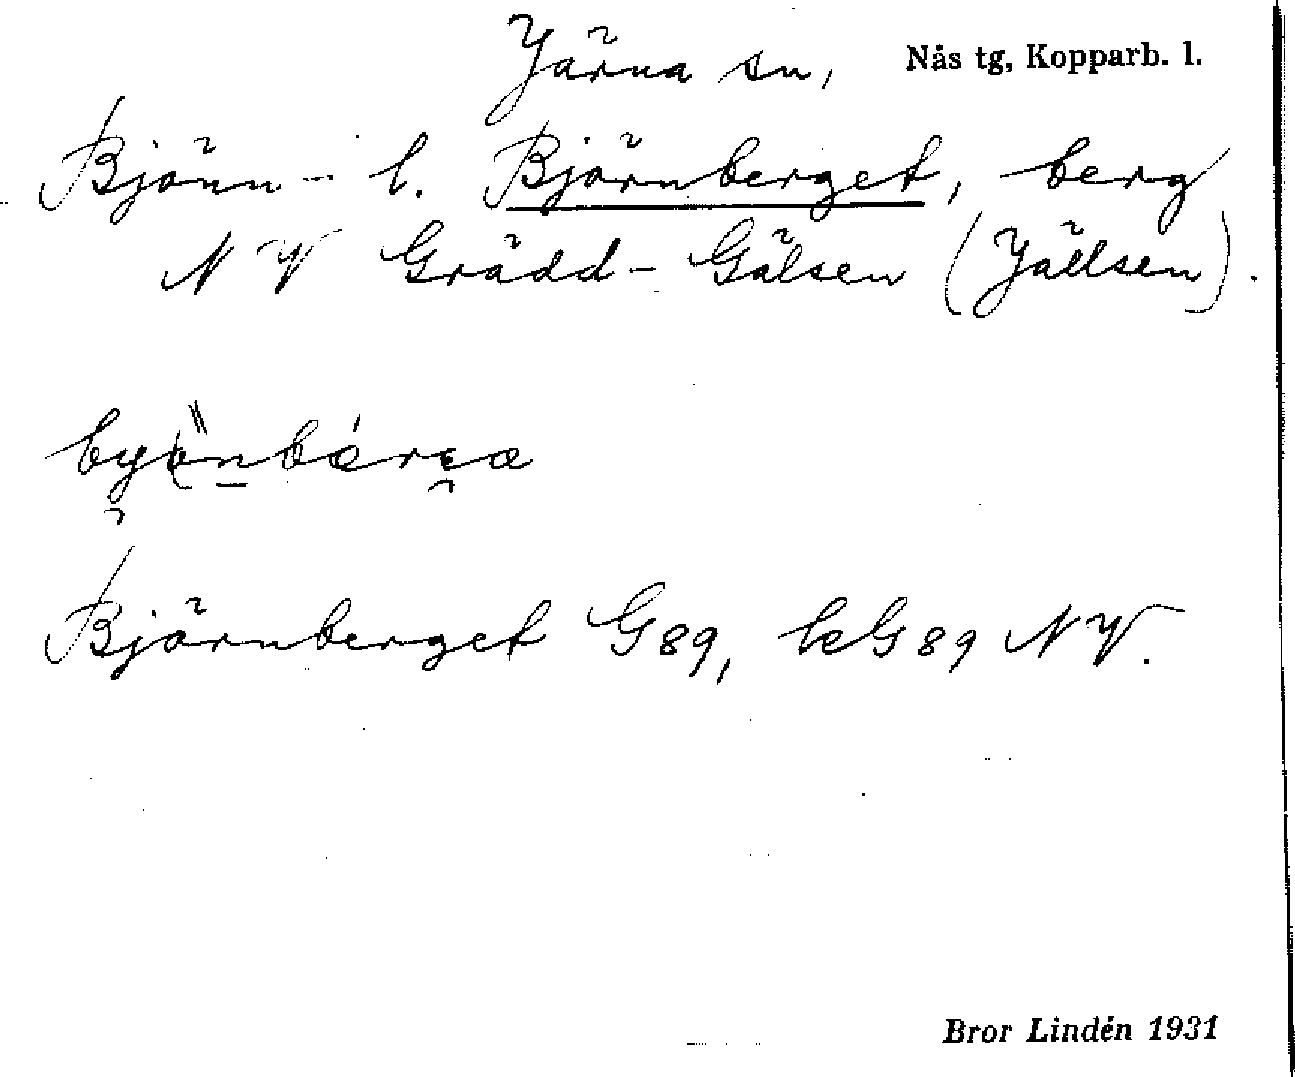 Järna sn, Nås tg, Kopparb. l.
Björn- l. Björnberget, berg
N V Grädd-Gälsen (Jällsen).
Björnberget G89, kG89 NV.
Bror Lindén 1931